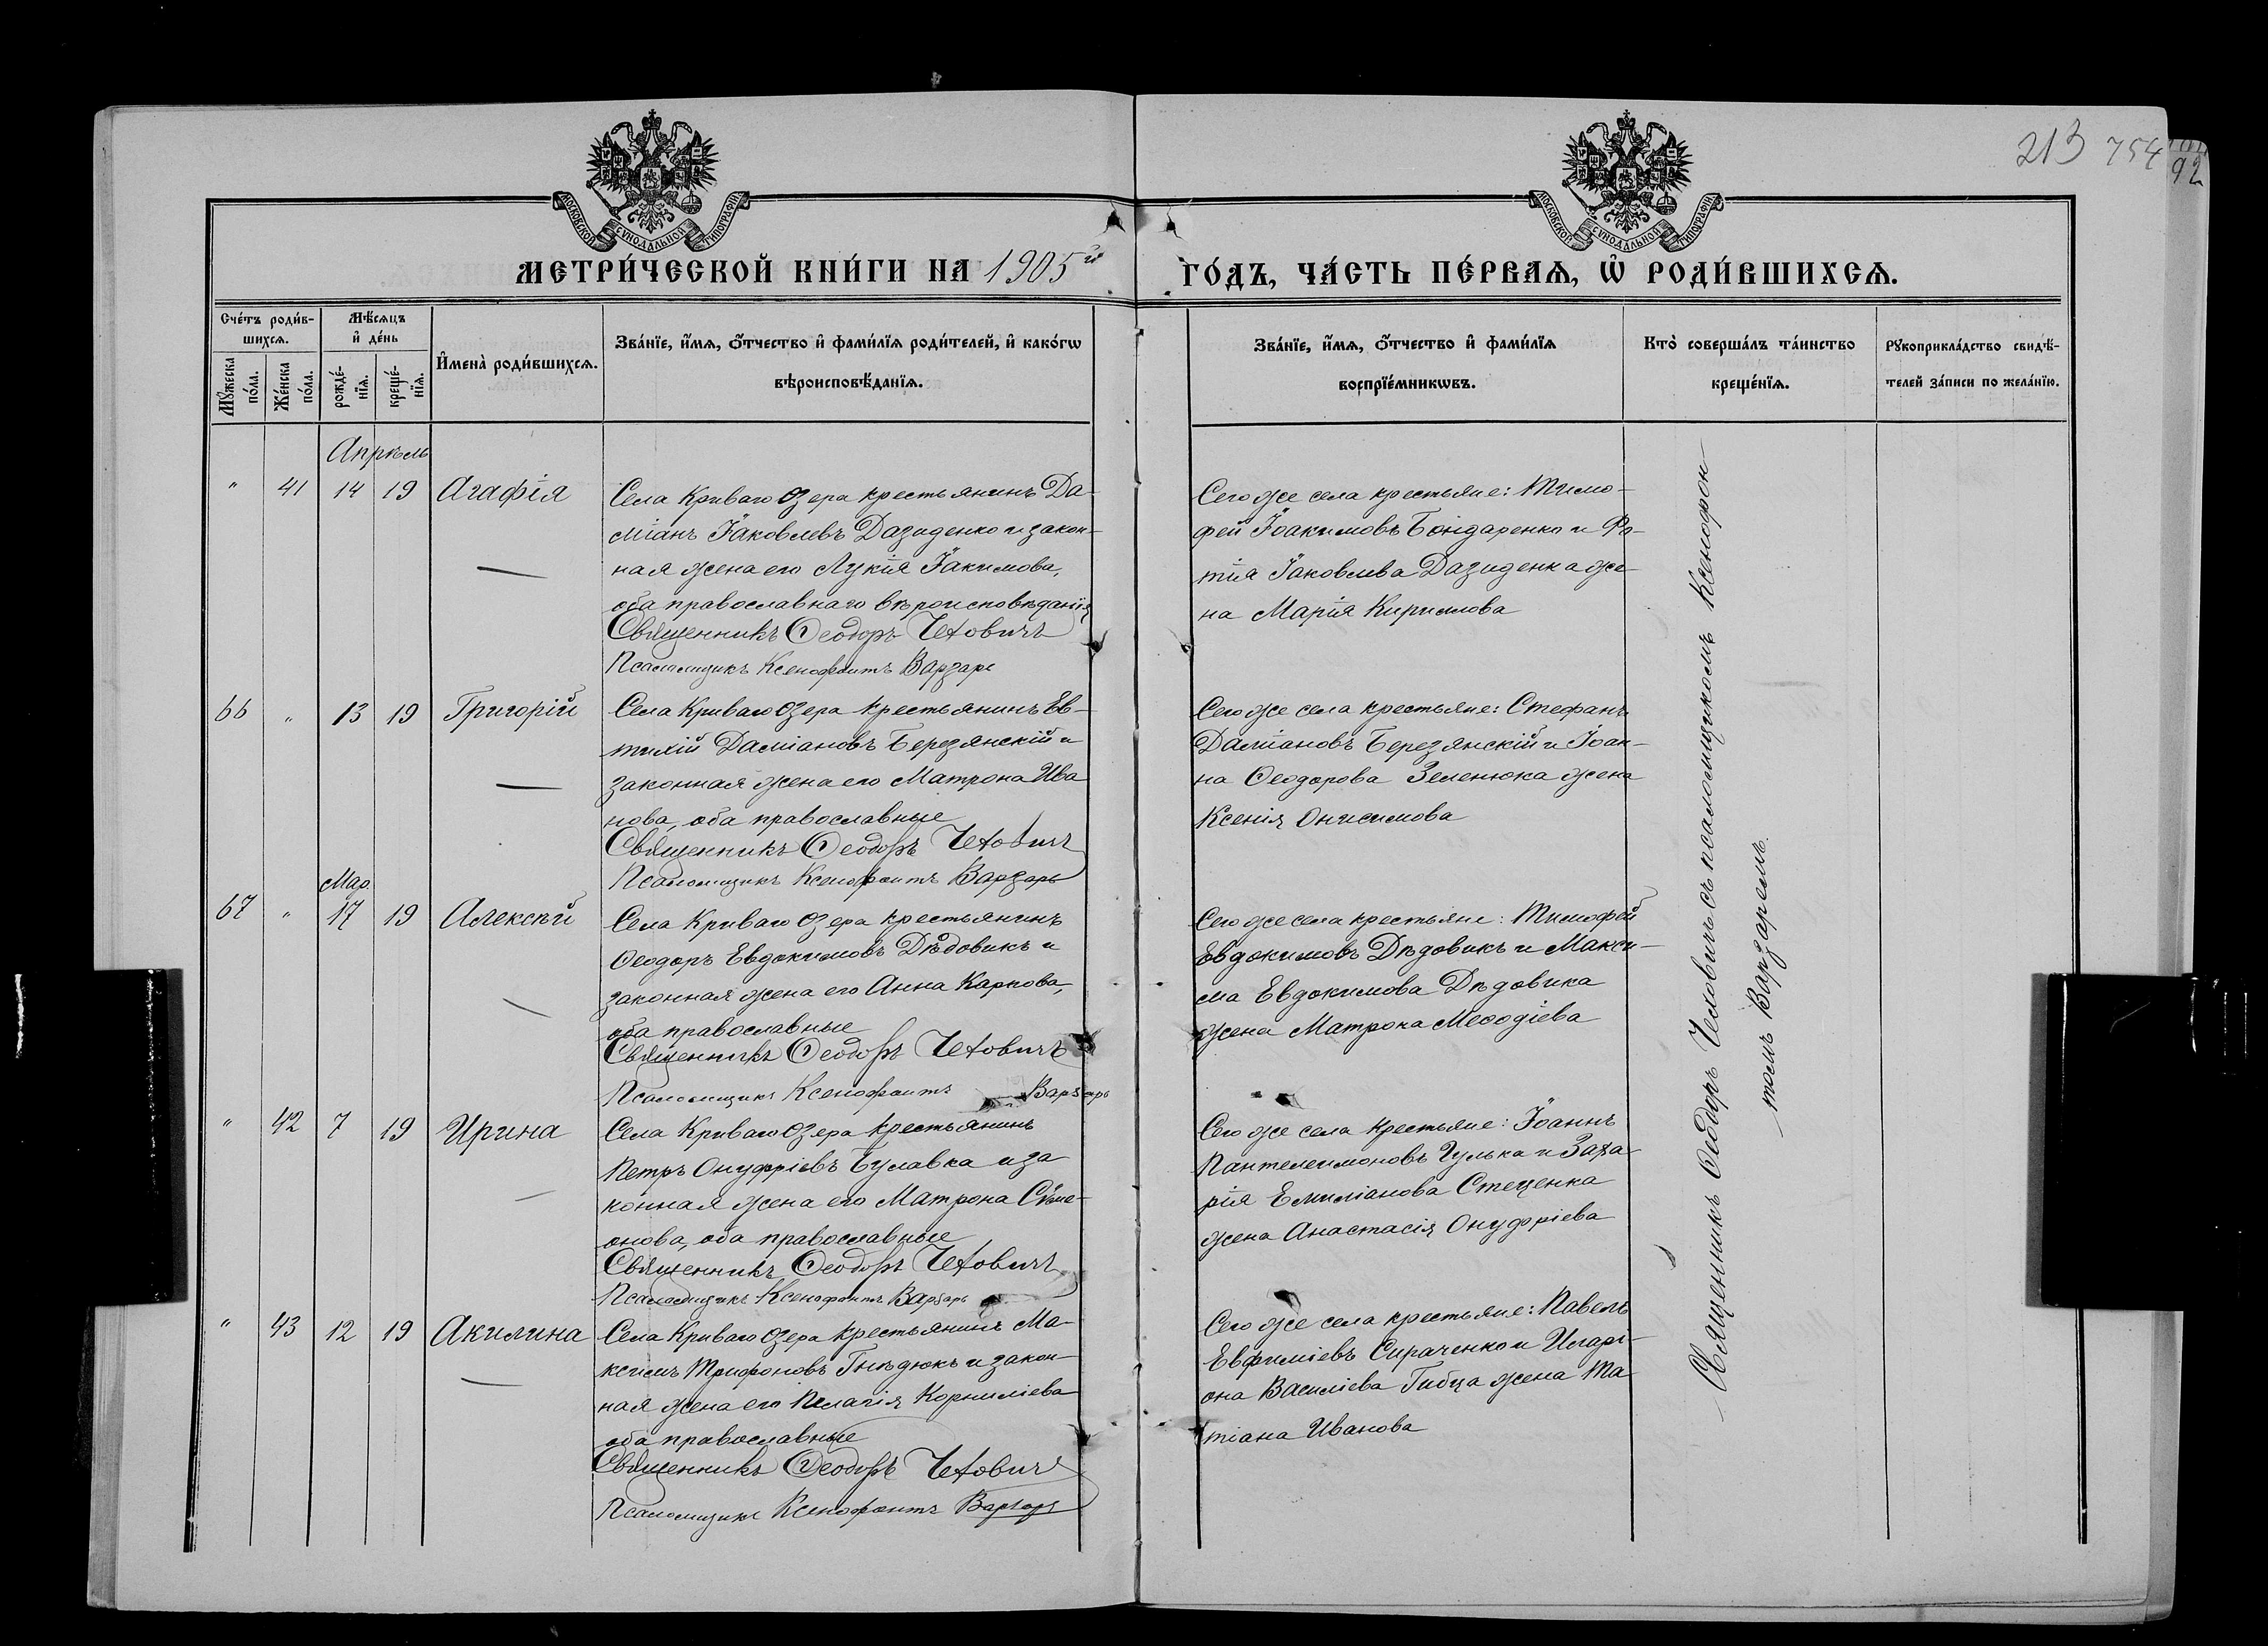 213 754
92
МОСКОВСКОЙ СѴНОДАЛЬНОЙ ТИПОГРАФІИ
МОСКОВСКОЙ СѴНОДАЛЬНОЙ ТИПОГРАФІИ
МЕТРИ́ЧЕСКОЙ КНИ́ГИ НА 1905й
ГО́ДЪ, ЧА́СТЬ ПЕ́РВАѦ, Ѡ҆ РОДИ́ВШИХСѦ.
Сче́тъ роди́в-
шихсѧ.
Мꙋ́жеска по́ла.
Же́нска по́ла.
Мѣ́сѧцъ
и҆ де́нь
рожде́-
нїѧ.
креще́-
нїѧ.
И҆мена̀ роди́вшихсѧ.
Зва́нїе, и҆́мѧ, ѻ҆́тчество и҆ фами́лїѧ роди́телей, и҆ како́гѡ
вѣроисповѣ́данїѧ.
Зва́нїе, и҆́мѧ, ѻ҆́тчество и҆ фами́лїѧ
воспрїе́мникѡвъ.
Кто̀ соверша́лъ та́инство
креще́нїѧ.
Рꙋкоприкла́дство свидѣ́-
телей за́писи по жела́нїю.
Апрѣль
" 41 14 19 Агафія
Села Криваго Озера крестьянинъ Да-
міанъ Іаковлевъ Дазиденко и закон-
ная жена его Лукія Іакимова,
оба православнаго вѣроисповѣданія
Священникъ Ѳеодоръ Чехович
Псаломщикъ Ксенофонтъ Варзарь
Сего же села крестьяне: Тимо-
фей Іоакимовъ Бондаренко и Фо-
тія Іаковлева Дазиденка же-
на Марія Кириллова
66 " 13 19 Григорій
Села Криваго Озера крестьянинъ Ев-
тихій Даміановъ Березянскій и
законная жена его Матрона Ива
нова, оба православные
Священникъ Ѳеодоръ Чехович
Псаломщикъ Ксенофонтъ Варзарь
Сего же села крестьяне: Стефанъ
Даміановъ Березянскій и Іоан-
на Ѳеодорова Зеленюка жена
Ксенія Онисимова
Мар.
67 " 17 19 Алексѣй
Села Криваго Озера крестьянинъ
Ѳеодоръ Евдокимовъ Дѣдовикъ и
законная жена его Анна Карпова,
оба православные
Священникъ Ѳеодоръ Чеховичъ
Псаломщикъ Ксенофонтъ Варзарь
Сего же села крестьяне: Тимофей
Евдокимовъ Дѣдовикъ и Макси-
ма Евдокимова Дѣдовика
жена Матрона Меѳодіева
" 42 7 19 Ирина
Села Криваго Озера крестьянинъ
Петръ Онуфріевъ Булавка и за
конная жена его Матрона Сѵме-
онова, оба православные
Священникъ Ѳеодоръ Чехович
Псаломщикъ Ксенофонтъ Варзарь
Сего же села крестьяне: Іоаннъ
Пантелеимоновъ Гулька и Заха-
рія Емиліанова Стеценка
жена Анастасія Онуфріева
" 43 12 19 Акилина
Села Криваго Озера крестьянинъ Ма-
ксимъ Трифоновъ Гнѣдюкъ и закон-
ная жена его Пелагія Корниліева
оба православные
Священникъ Ѳеодоръ Чехович
Псаломщикъ Ксенофонтъ Варзарь
Сего же села крестьяне: Павелъ
Евфиміевъ Сираченко и Иларі-
она Василіева Гибца жена Та
тіана Иванова
Священникъ Ѳеодоръ Чеховичъ съ псаломщикомъ Ксенофон-
томъ Варзаремъ.